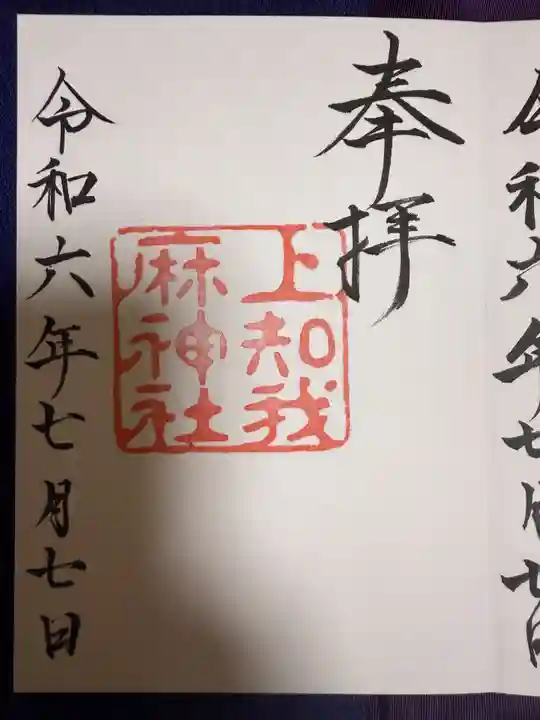 令和六年七月七日
奉拝
上知我
麻神社
令和六年七月七日